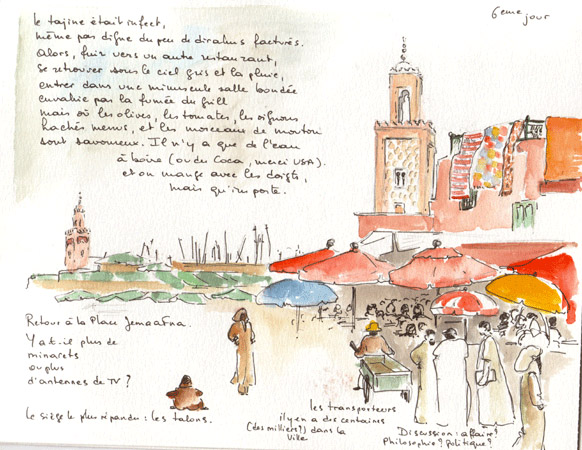 6eme jour
le tajine était infect,
même pas digne du peu de dirahms facturés.
Alors, fuir vers un autre restaurant,
se retrouver sous le ciel gris et la pluie,
entrer dans une minuscule salle bondée
envahie par la fumée du grill
mais où les olives, les tomates, les oignons
hachés menus, et les morceaux de mouton
sont savoureux. Il n'y a que de l'eau
à boire (ou du Coca, merci USA).
et on mange avec les doigts,
mais qu'importe.
Retour à la Place Jemaa Fna.
Y a t-il plus de
minarets
ou plus
d'antennes de TV ?
le siège le plus répandu : les talons.
les transporteurs
il y en a des centaines
(des milliers?) dans la
ville
Discussion : affaire?
Philosophie? politique?